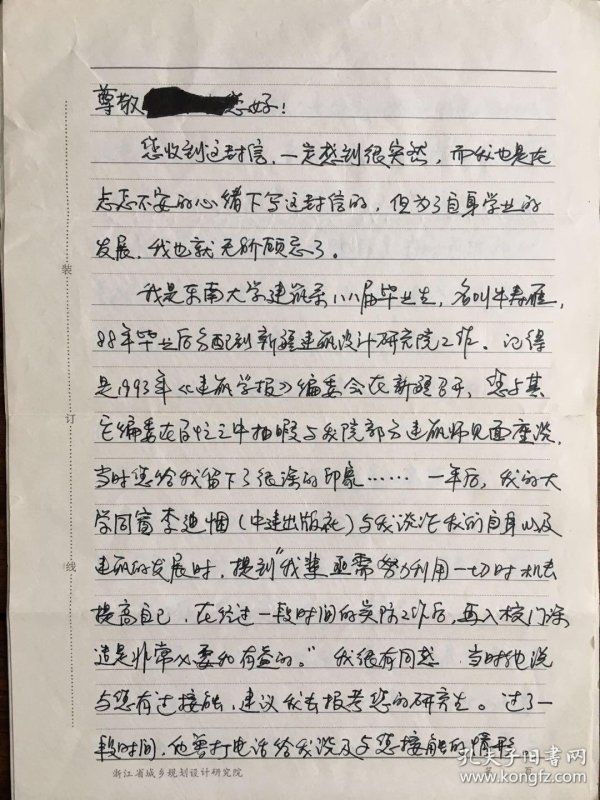 尊敬 您好!
您收到这封信，一定感到很突然，而我也是在
忐忑不安的心绪下写这封信的，但为了自身学业的
发展，我也就无所顾忌了。
我是东南大学建筑系 届毕业生，名叫牛春雁，
88年毕业后分配到新疆建筑设计研究院工作。记得
是1993年《建筑学报》编委会在新疆召开，您与其
它编委在百忙之中抽暇与我院部分建筑师见面座谈，
当时您给我留下了很深的印象…… 一年后，我的大
学同窗李迪悃(中建出版社)与我谈论我的自身以及
建筑的发展时，提到"我辈亟需努力利用一切时机去
提高自己，在经过一段时间的实际工作后，再入校门深
造是非常必要和有益的。"我很有同感，当时他说
与您有过接触，建议我去报考您的研究生。过了一
段时间，他曾打电话给我谈及与您接触的情形。
装
订
线
浙江省城乡规划设计研究院
孔夫子旧书网
www.kongfz.com